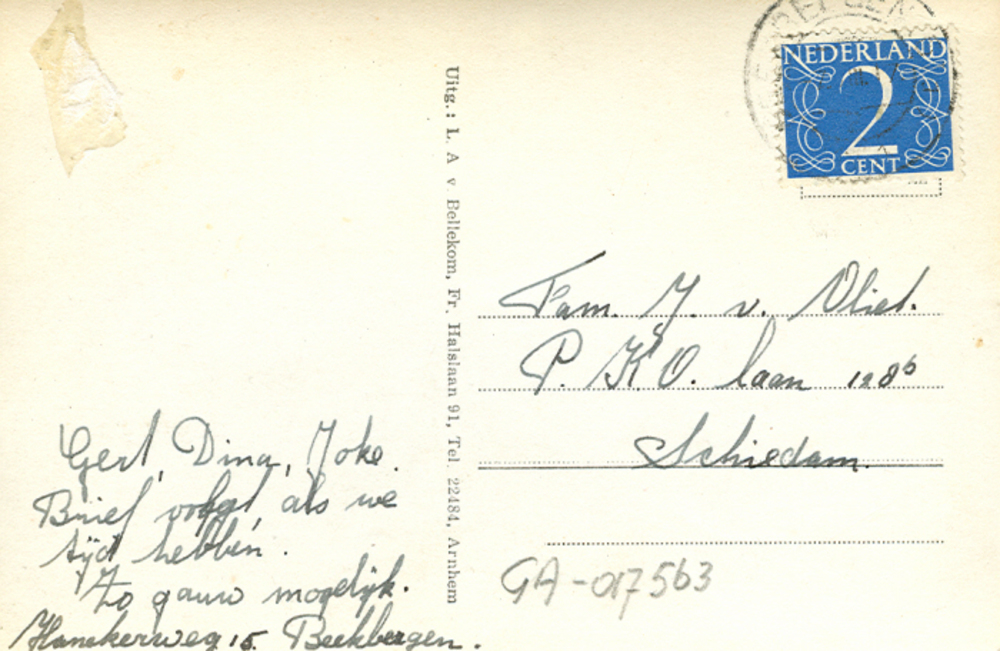 NEDERLAND
2
CENT
Uitg.: L. A v Bellekom, Fr. Halslaan 91, Tel. 22484, Arnhem
Fam. J. v. Vliet.
P. K. O. laan 128b
Schiedam.
Gert, Dina, Joke.
Brief volgt, als we
tijd hebben.
Zo gauw mogelijk.
15 Beekbergen.
GA-017563